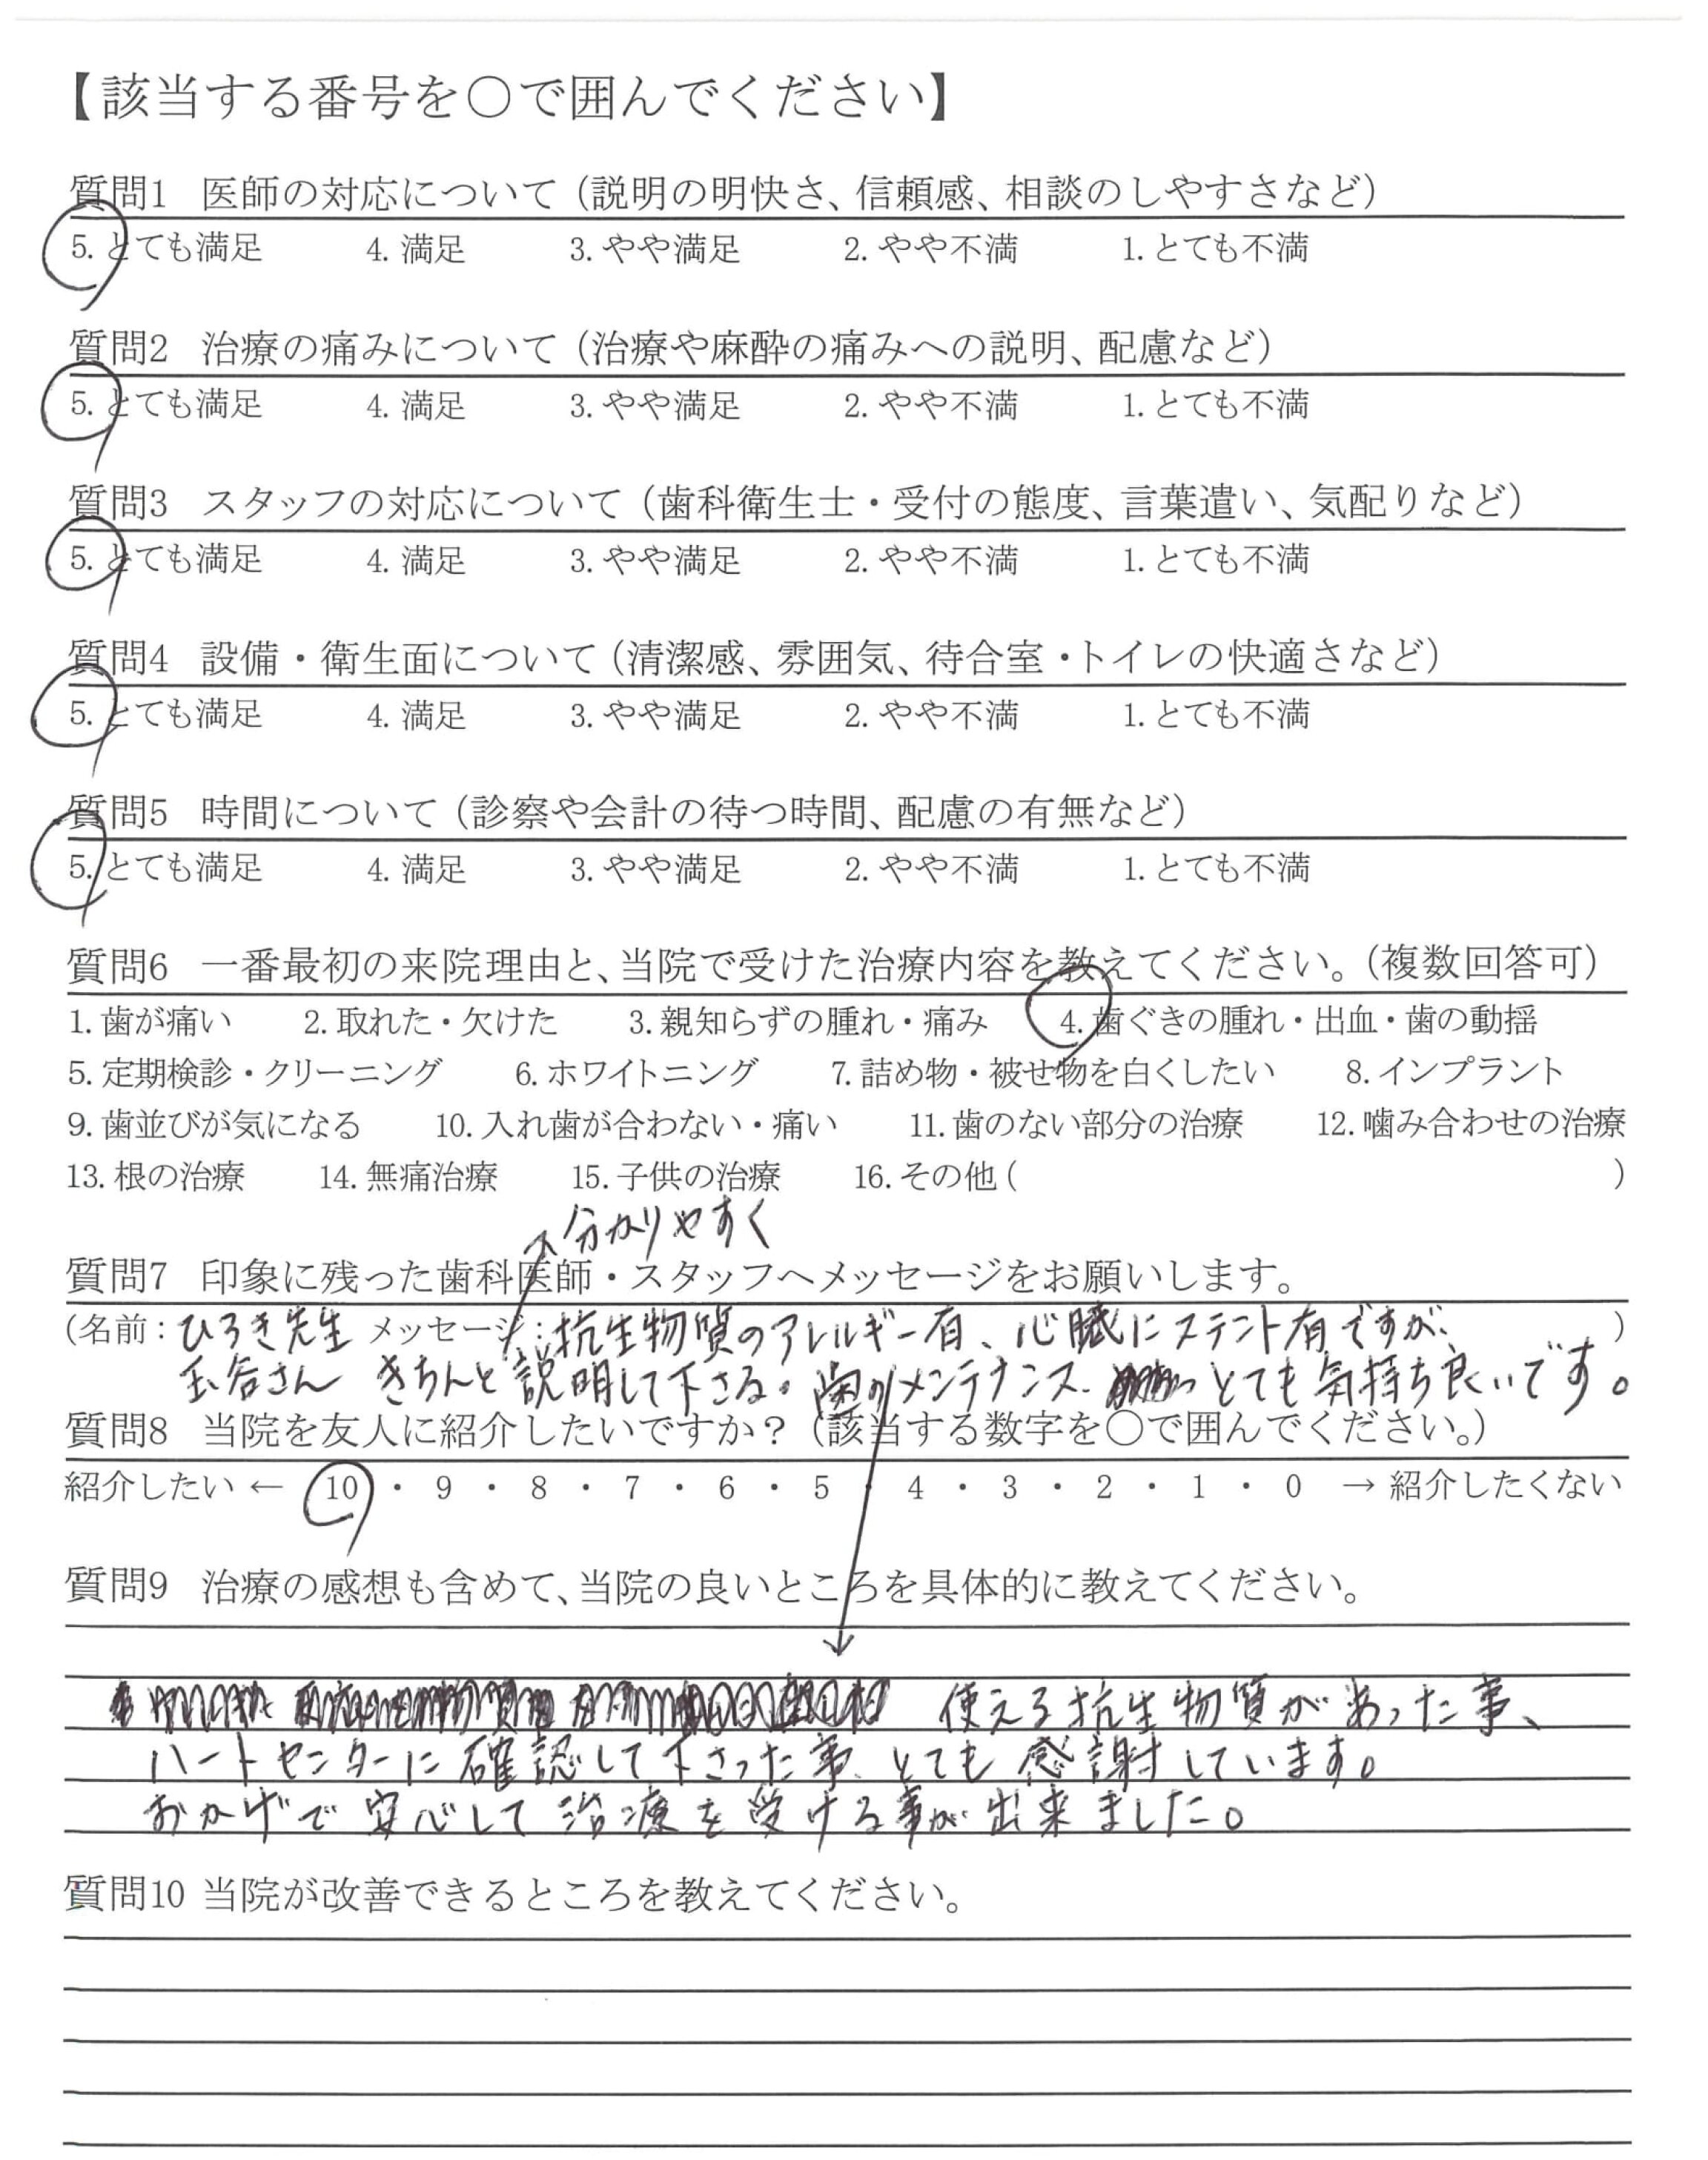 【該当する番号を〇で囲んでください】
質問1 医師の対応について（説明の明快さ、信頼感、相談のしやすさなど）
5. とても満足 4. 満足 3. やや満足 2. やや不満 1. とても不満
質問2 治療の痛みについて（治療や麻酔の痛みへの説明、配慮など）
5. とても満足 4. 満足 3. やや満足 2. やや不満 1. とても不満
質問3 スタッフの対応について（歯科衛生士・受付の態度、言葉遣い、気配りなど）
5. とても満足 4. 満足 3. やや満足 2. やや不満 1. とても不満
質問4 設備・衛生面について（清潔感、雰囲気、待合室・トイレの快適さなど）
5. とても満足 4. 満足 3. やや満足 2. やや不満 1. とても不満
質問5 時間について（診察や会計の待つ時間、配慮の有無など）
5. とても満足 4. 満足 3. やや満足 2. やや不満 1. とても不満
質問6 一番最初の来院理由と、当院で受けた治療内容を教えてください。（複数回答可）
1. 歯が痛い 2. 取れた・欠けた 3. 親知らずの腫れ・痛み 4. 歯ぐきの腫れ・出血・歯の動揺
5. 定期検診・クリーニング 6. ホワイトニング 7. 詰め物・被せ物を白くしたい 8. インプラント
9. 歯並びが気になる 10. 入れ歯が合わない・痛い 11. 歯のない部分の治療 12. 噛み合わせの治療
13. 根の治療 14. 無痛治療 15. 子供の治療 16. その他（ ）
分かりやすく
質問7 印象に残った歯科医師・スタッフへメッセージをお願いします。
（名前：ひろき先生 メッセージ：抗生物質のアレルギー有、心臓にステント有ですが、）
玉谷さん きちんと説明して下さる。歯のメンテナンス、とても気持ち良いです。
質問8 当院を友人に紹介したいですか？（該当する数字を〇で囲んでください。）
紹介したい ← 10 ・ 9 ・ 8 ・ 7 ・ 6 ・ 5 ・ 4 ・ 3 ・ 2 ・ 1 ・ 0 → 紹介したくない
質問9 治療の感想も含めて、当院の良いところを具体的に教えてください。
使える抗生物質があった事、
ハートセンターに確認して下さった事、とても感謝しています。
おかげで安心して治療を受ける事が出来ました。
質問10 当院が改善できるところを教えてください。